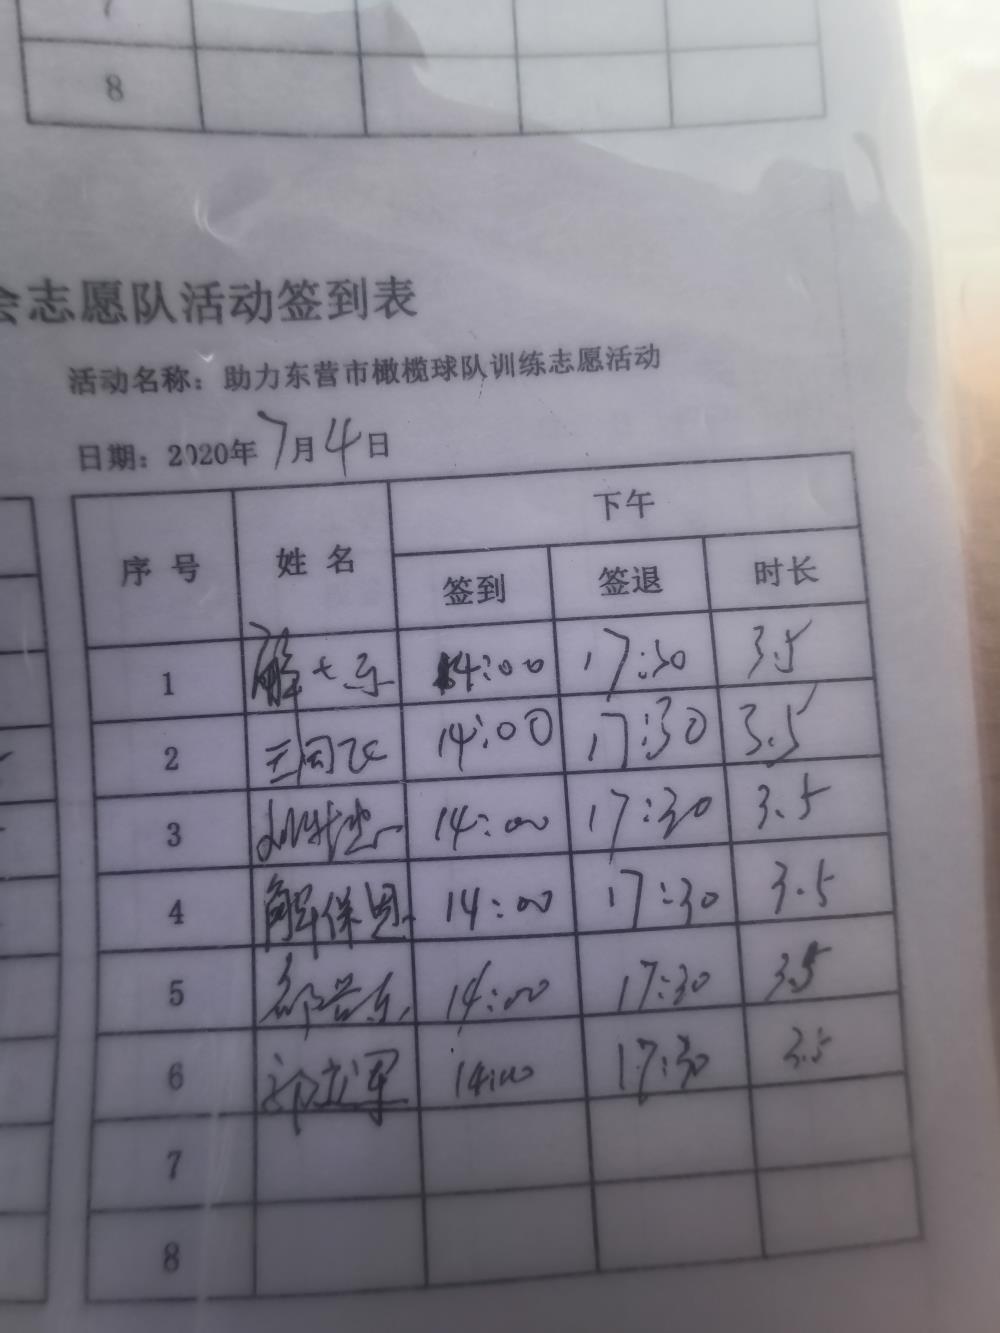 7
8
会志愿队活动签到表
活动名称：助力东营市橄榄球队训练志愿活动
日期：2020年7月4日
序号 姓名 下午
签到 签退 时长
1 14:00 17:30 3.5
2 14:00 17:30 3.5
3 14:00 17:30 3.5
4 解保恩 14:00 17:30 3.5
5 14:00 17:30 3.5
6 郭立军 14:00 17:30 3.5
7
8